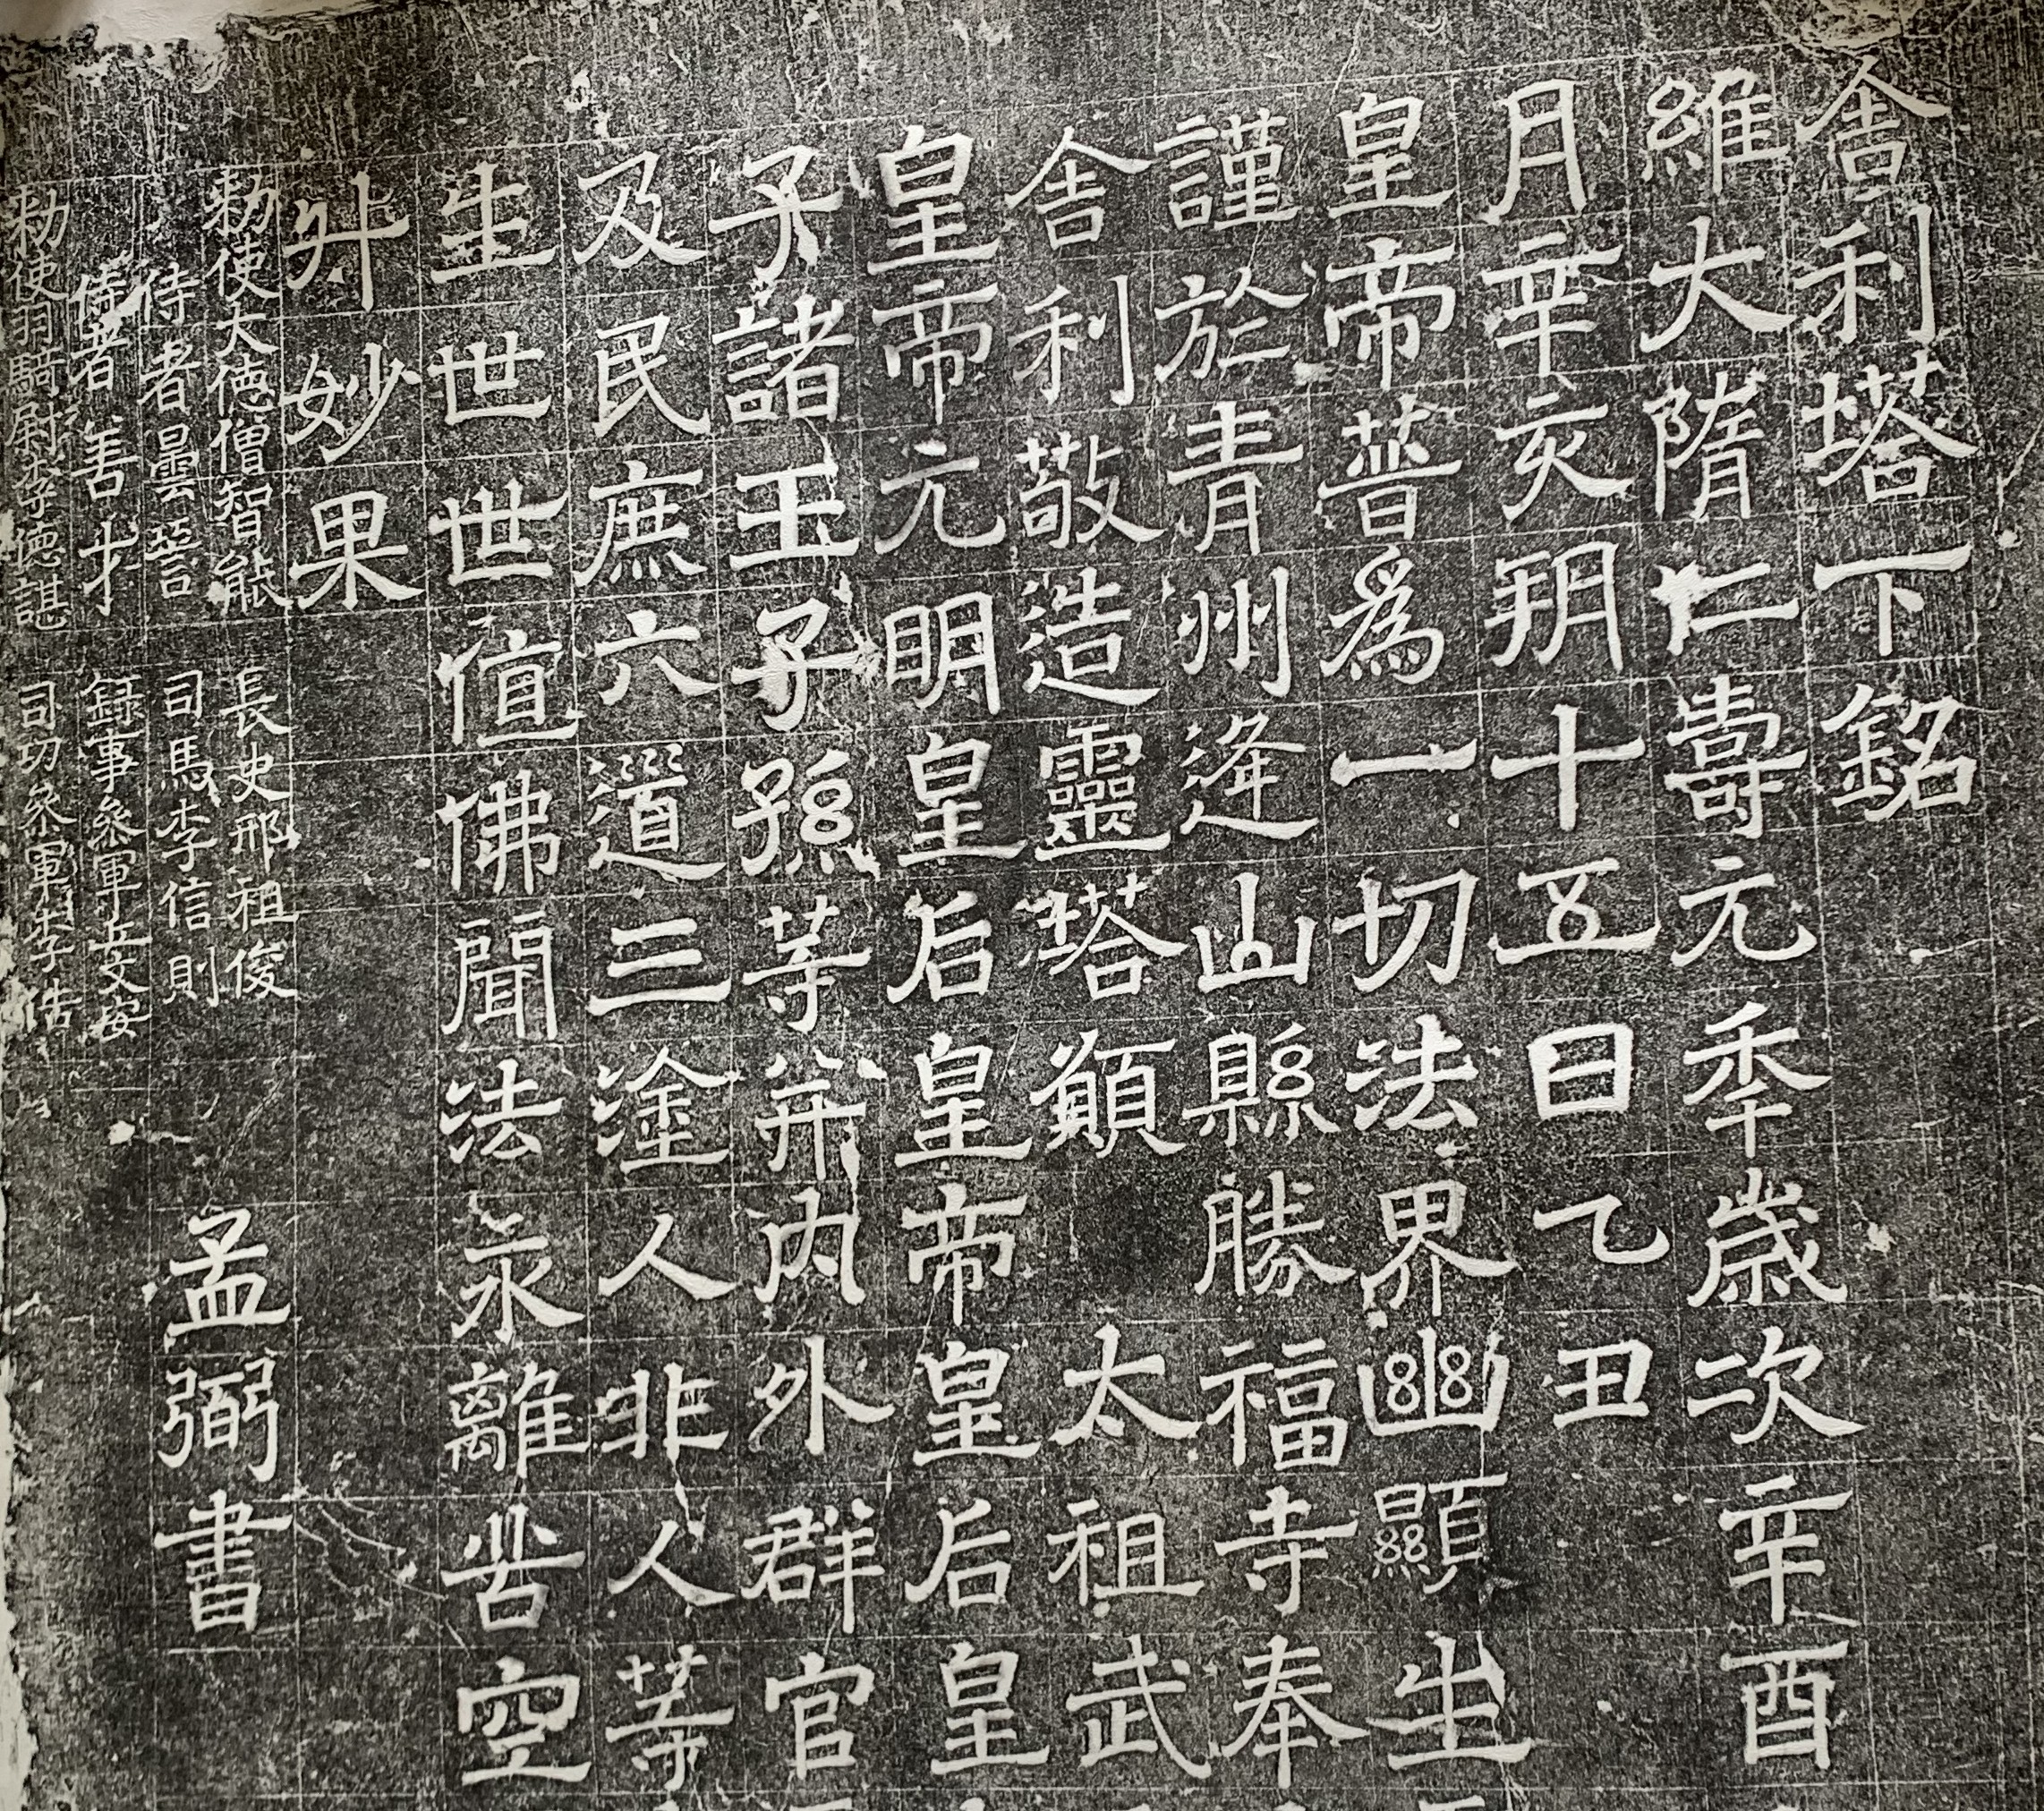 舍利塔下銘
維大隋仁壽元季歲次辛酉
月辛亥朔十五日乙丑
皇帝普爲一切法界幽顯生
謹於青州逢山縣勝福寺奉
舍利敬造靈塔願太祖武
皇帝元明皇后皇帝皇后皇
子諸王子孫等并内外群官
及民庶六道三塗人非人等
生世世值佛聞法永離苦空
妙果
敕使大德僧智能 長史邢祖俊
侍者曇 司馬李信則
侍者善才 錄事參軍丘文安
敕使羽騎尉李德諶 司功參軍李佸
孟弼書